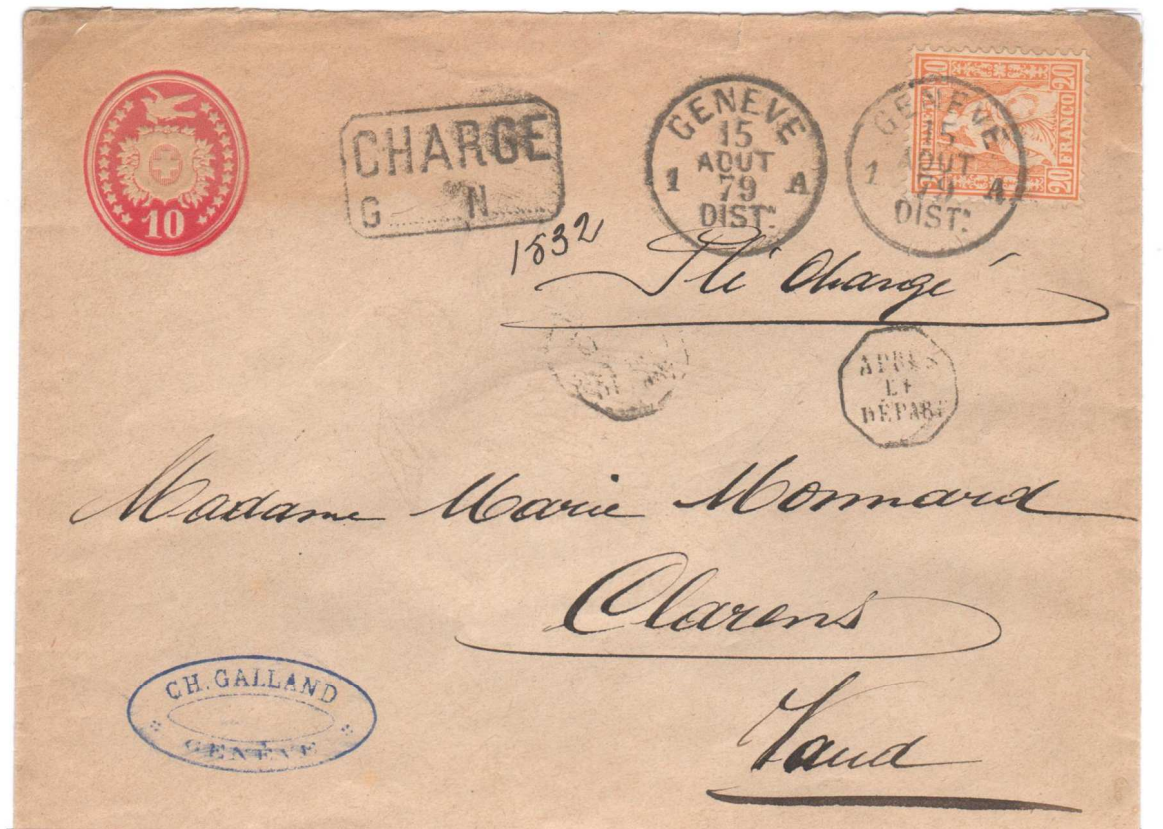 10
CHARGE
G N
GENEVE
15
AOUT
79
1 A
DIST:
GENEVE
15
AOUT
79
1 A
DIST:
20 20
FRANCO
20
1532
Pli Chargé
APRÈS
LE
DÉPART
Madame Marie Monnard
Clarens
Vaud
CH. GALLAND
GENÈVE